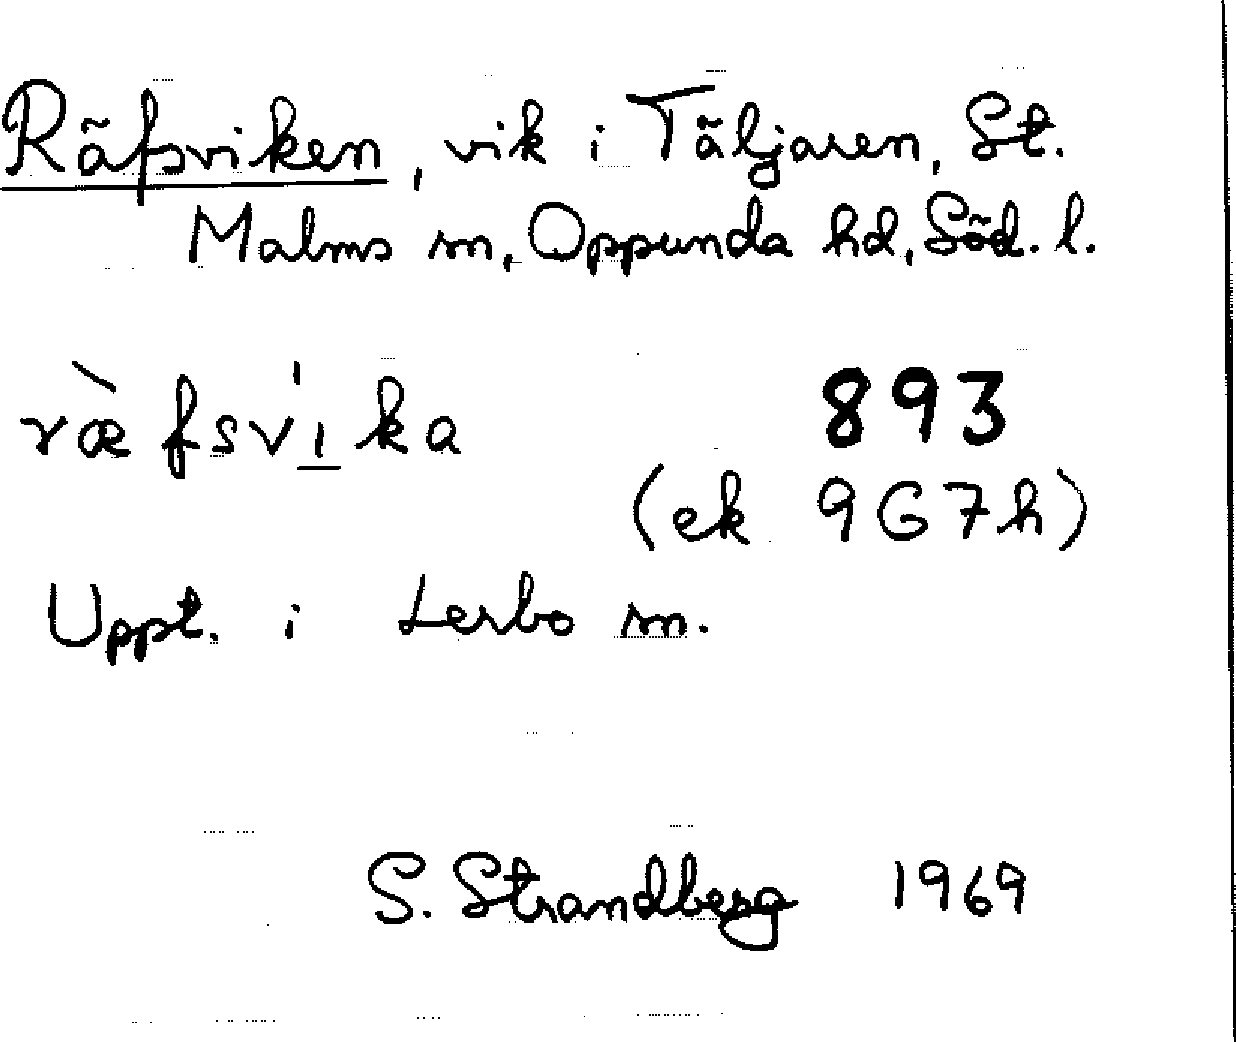 Räfsviken, vik i Täljaren, St.
Malms sn, Oppunda hd, Söd. l.
ræ̀fsvi̱̍ka
893
(ek 9G7h)
Uppt. i Lerbo sn.
S. Strandberg 1969